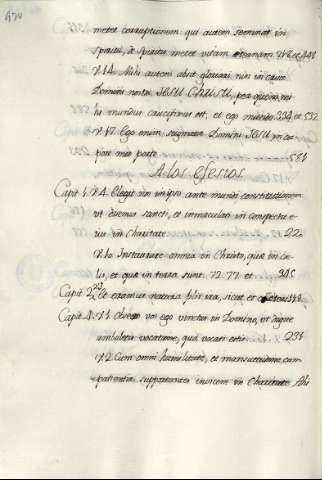 470
metet corruptionem qui autem seminat in
spiritu, de spiritu metet vitam æternam 248 et 448
℣.14. Mihi autem absit gloriari nisi in cruce
Domini nostri JESU Christi, per quem mi
hi mundus crucifixus est, et ego mundo 334 et 532
℣.17. Ego enim stigmata Domini JESU in cor
pore meo porto
A los Efesios
Capit 1. ℣.4. Elegit nos in ipso ante mundi constitutionem
ut essemus sancti, et immaculati in conspectu e
ius in charitate 22
℣.10 Instaurare omnia in Christo, quæ in cœ
lis, et quæ in terra sunt. 72. 77. et 305
Capit 2. ℣.3 Et eramus natura filii iræ, sicut et cæteri
Capit 4. ℣.1 Obsecro vos ego vinctus in Domino, ut digne
ambuletis vocatione, qua vocati estis 231
℣.2 Cum omni humilitate, et mansuetudine cum
patientia supportantes invicem in Charitate